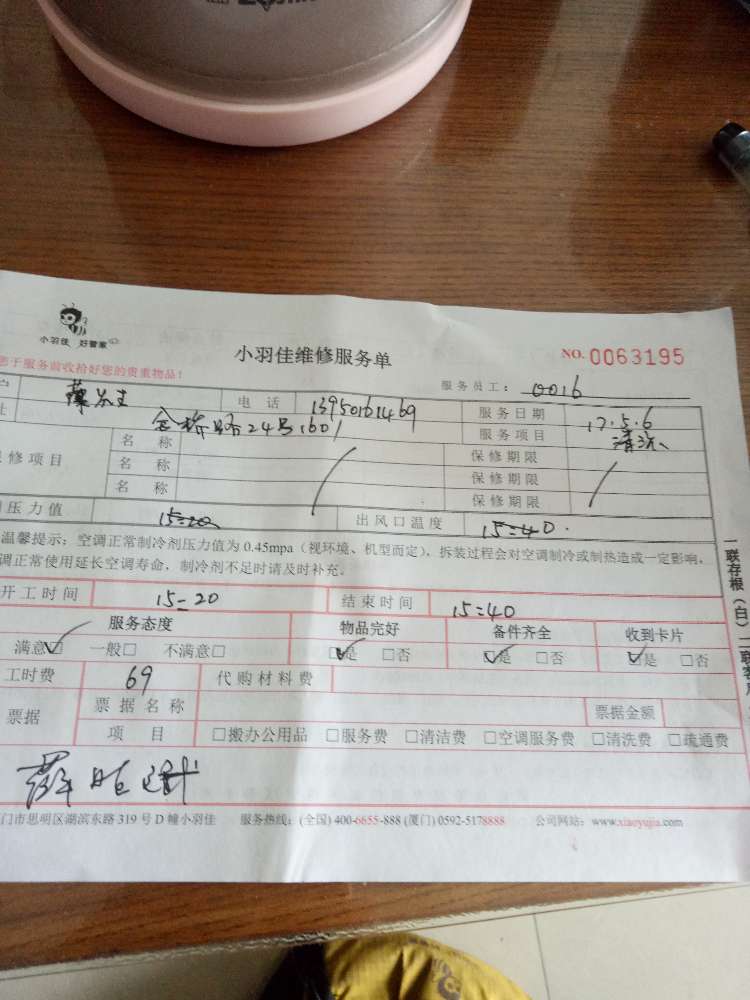 小羽佳 好管家
小羽佳维修服务单
NO.0063195
您于服务前收拾好您的贵重物品！
服务员工： 0016
电 话 13950161469 服务日期 17.5.6
址 24号1601 服务项目 清洗
修项目 名 称 保修期限
名 称 保修期限
名 称 保修期限
压力值 15=20 出风口温度 15=40.
温馨提示：空调正常制冷剂压力值为 0.45mpa（视环境、机型而定），拆装过程会对空调制冷或制热造成一定影响，
调正常使用延长空调寿命，制冷剂不足时请及时补充。
开工时间 15=20 结束时间 15=40
服务态度 物品完好 备件齐全 收到卡片
满意☑ 一般□ 不满意□ ☑是 □否 ☑是 □否 ☑是 □否
工时费 69 代购材料费
票据 票据名称 票据金额
项 目 □搬办公用品 □服务费 □清洁费 □空调服务费 □清洗费 □疏通费
门市思明区湖滨东路 319 号 D 幢小羽佳 服务热线：(全国) 400-6655-888 (厦门) 0592-5178888 公司网站：www.xiaoyujia.com
一联存根（白）二联客户